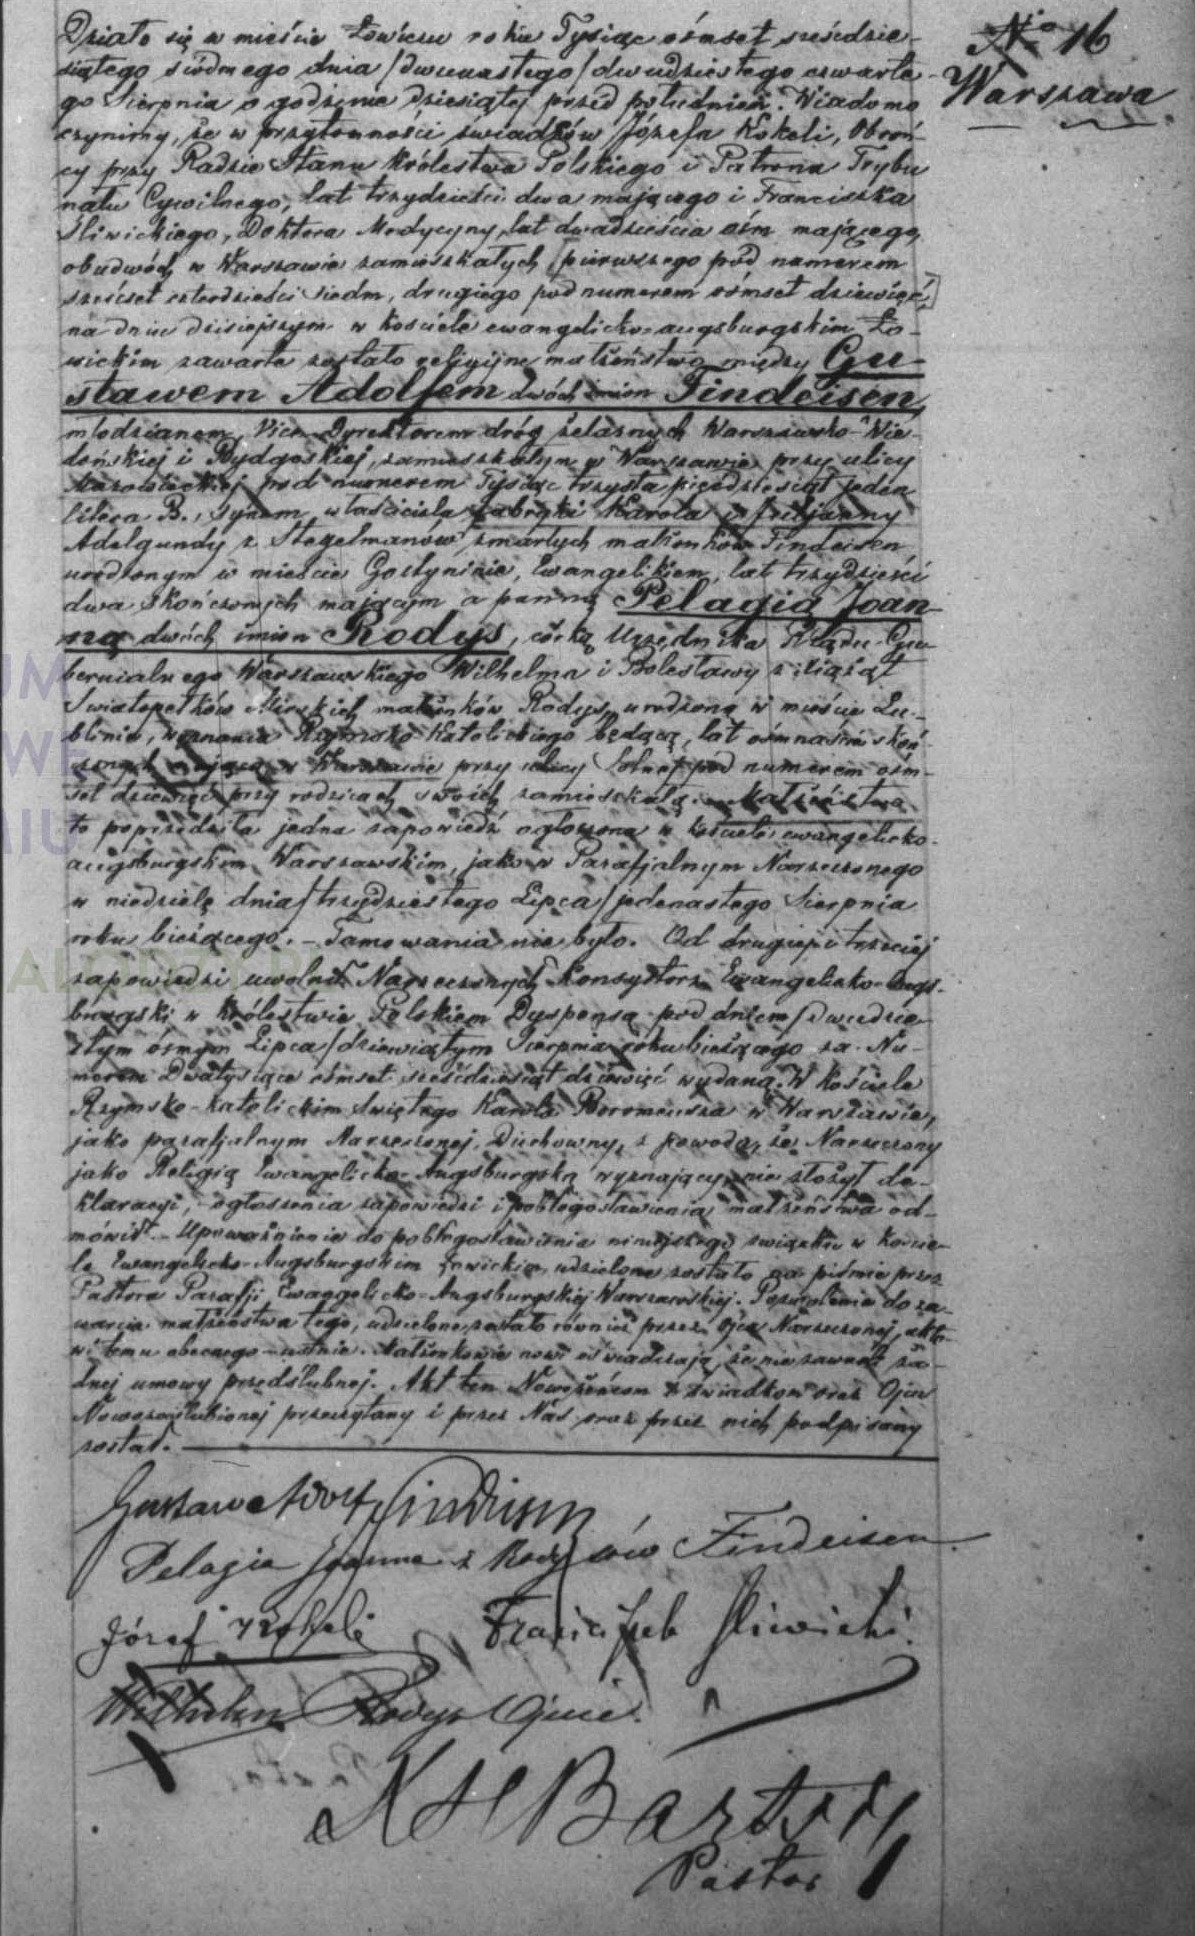 No 16
Warszawa
Działo się w mieście Łowiczu roku Tysiąc ośmset sześćdzie-
siątego siódmego dnia /dwunastego/ dwudziestego czwarte-
go Sierpnia o godzinie dziesiątej przed południem. Wiadomo
czynimy, że w przytomności świadków Józefa Kokeli, Obroń-
cy przy Radzie Stanu Królestwa Polskiego i Patrona Trybu
nału Cywilnego, lat trzydzieści dwa mającego i Franciszka
Śliwickiego, Doktora Medycyny, lat dwadzieścia ośm mającego,
obudwóch w Warszawie zamieszkałych /pierwszego pod numerem
sześćset czterdzieści siedm, drugiego pod numerem ośmset dziewięć,
na dniu dzisiejszym w kościele ewangelicko-augsburgskim Ło-
wickim zawarte zostało religijne małżeństwo między Gu-
stawem Adolfem dwóch imion Findeisen,
młodzianem, Vice-Dyrektorem dróg żelaznych Warszawsko-Wie-
deńskiej i Bydgoskiej, zamieszkałym w Warszawie przy ulicy
Mazowieckiej pod numerem Tysiąc trzysta pięćdziesiąt jeden
litera B., synem właściciela fabryki Karola i Julijanny
Adelgundy z Stegelmanów, zmarłych małżonków Findeisen,
urodzonym w mieście Gostyninie, Ewangelikiem, lat trzydzieści
dwa skończonych mającym a panną Pelagią Joan-
ną dwóch imion Rodys, córką Urzędnika Rządu Gu-
bernialnego Warszawskiego Wilhelma i Bolesławy z Xiążąt
Światopełków Mirskich małżonków Rodys, urodzoną w mieście Lu-
blinie, wyznania Rzymsko Katolickiego będącą, lat ośmnaście skoń-
czonych mającą, w Warszawie przy ulicy Solnej pod numerem ośm-
set dziewięć przy rodzicach swoich zamieszkałą. Małżeństwo
to poprzedziła jedna zapowiedź ogłoszona w kościele ewangelicko-
augsburgskim Warszawskim, jako w Parafjalnym Narzeczonego
w niedzielę dnia /trzydziestego Lipca/ jedenastego Sierpnia
roku bieżącego. - Tamowania nie było. Od drugiej i trzeciej
zapowiedzi uwolnił Narzeczonych Konsystorz Ewangelicko-Augs-
burgski w Królestwie Polskiem Dyspensą pod dniem /dwudzie-
stym ósmym Lipca/ dziewiątym Sierpnia roku bieżącego za Nu-
merem Dwa tysiące ośmset sześćdziesiąt dziewięć wydaną. W kościele
Rzymsko-katolickim Świętego Karola Boromeusza w Warszawie,
jako parafjalnym Narzeczonej, Duchowny, z powodu, że Narzeczony
jako Religią Ewangelicko-Augsburgską wyznający, nie złożył de-
klaracyi, ogłoszenia zapowiedzi i pobłogosławienia małżeństwa od-
mówił. - Upoważnienie do pobłogosławienia niniejszego związku w Koście-
le Ewangelicko-Augsburgskim Łowickim, udzielone zostało na piśmie przez
Pastora Parafji Ewangelicko-Augsburgskiej Warszawskiej. Pozwolenie do za-
warcia małżeństwa tego, udzielone zostało również przez Ojca Narzeczonej, akto-
wi temu obecnego - ustnie. Małżonkowie nowi oświadczają, że nie zawarli ża-
dnej umowy przedślubnej. Akt ten Nowożeńcom i świadkom oraz Ojcu
Nowozaślubionej przeczytany i przez Nas oraz przez nich podpisany
został.
Gustaw Adolf Findeisen
Pelagia Joanna z Rodysów Findeisen
Józef Kokeli Franciszek Śliwicki
Wilhelm Rodys Ojciec.
Bartsch
Pastor